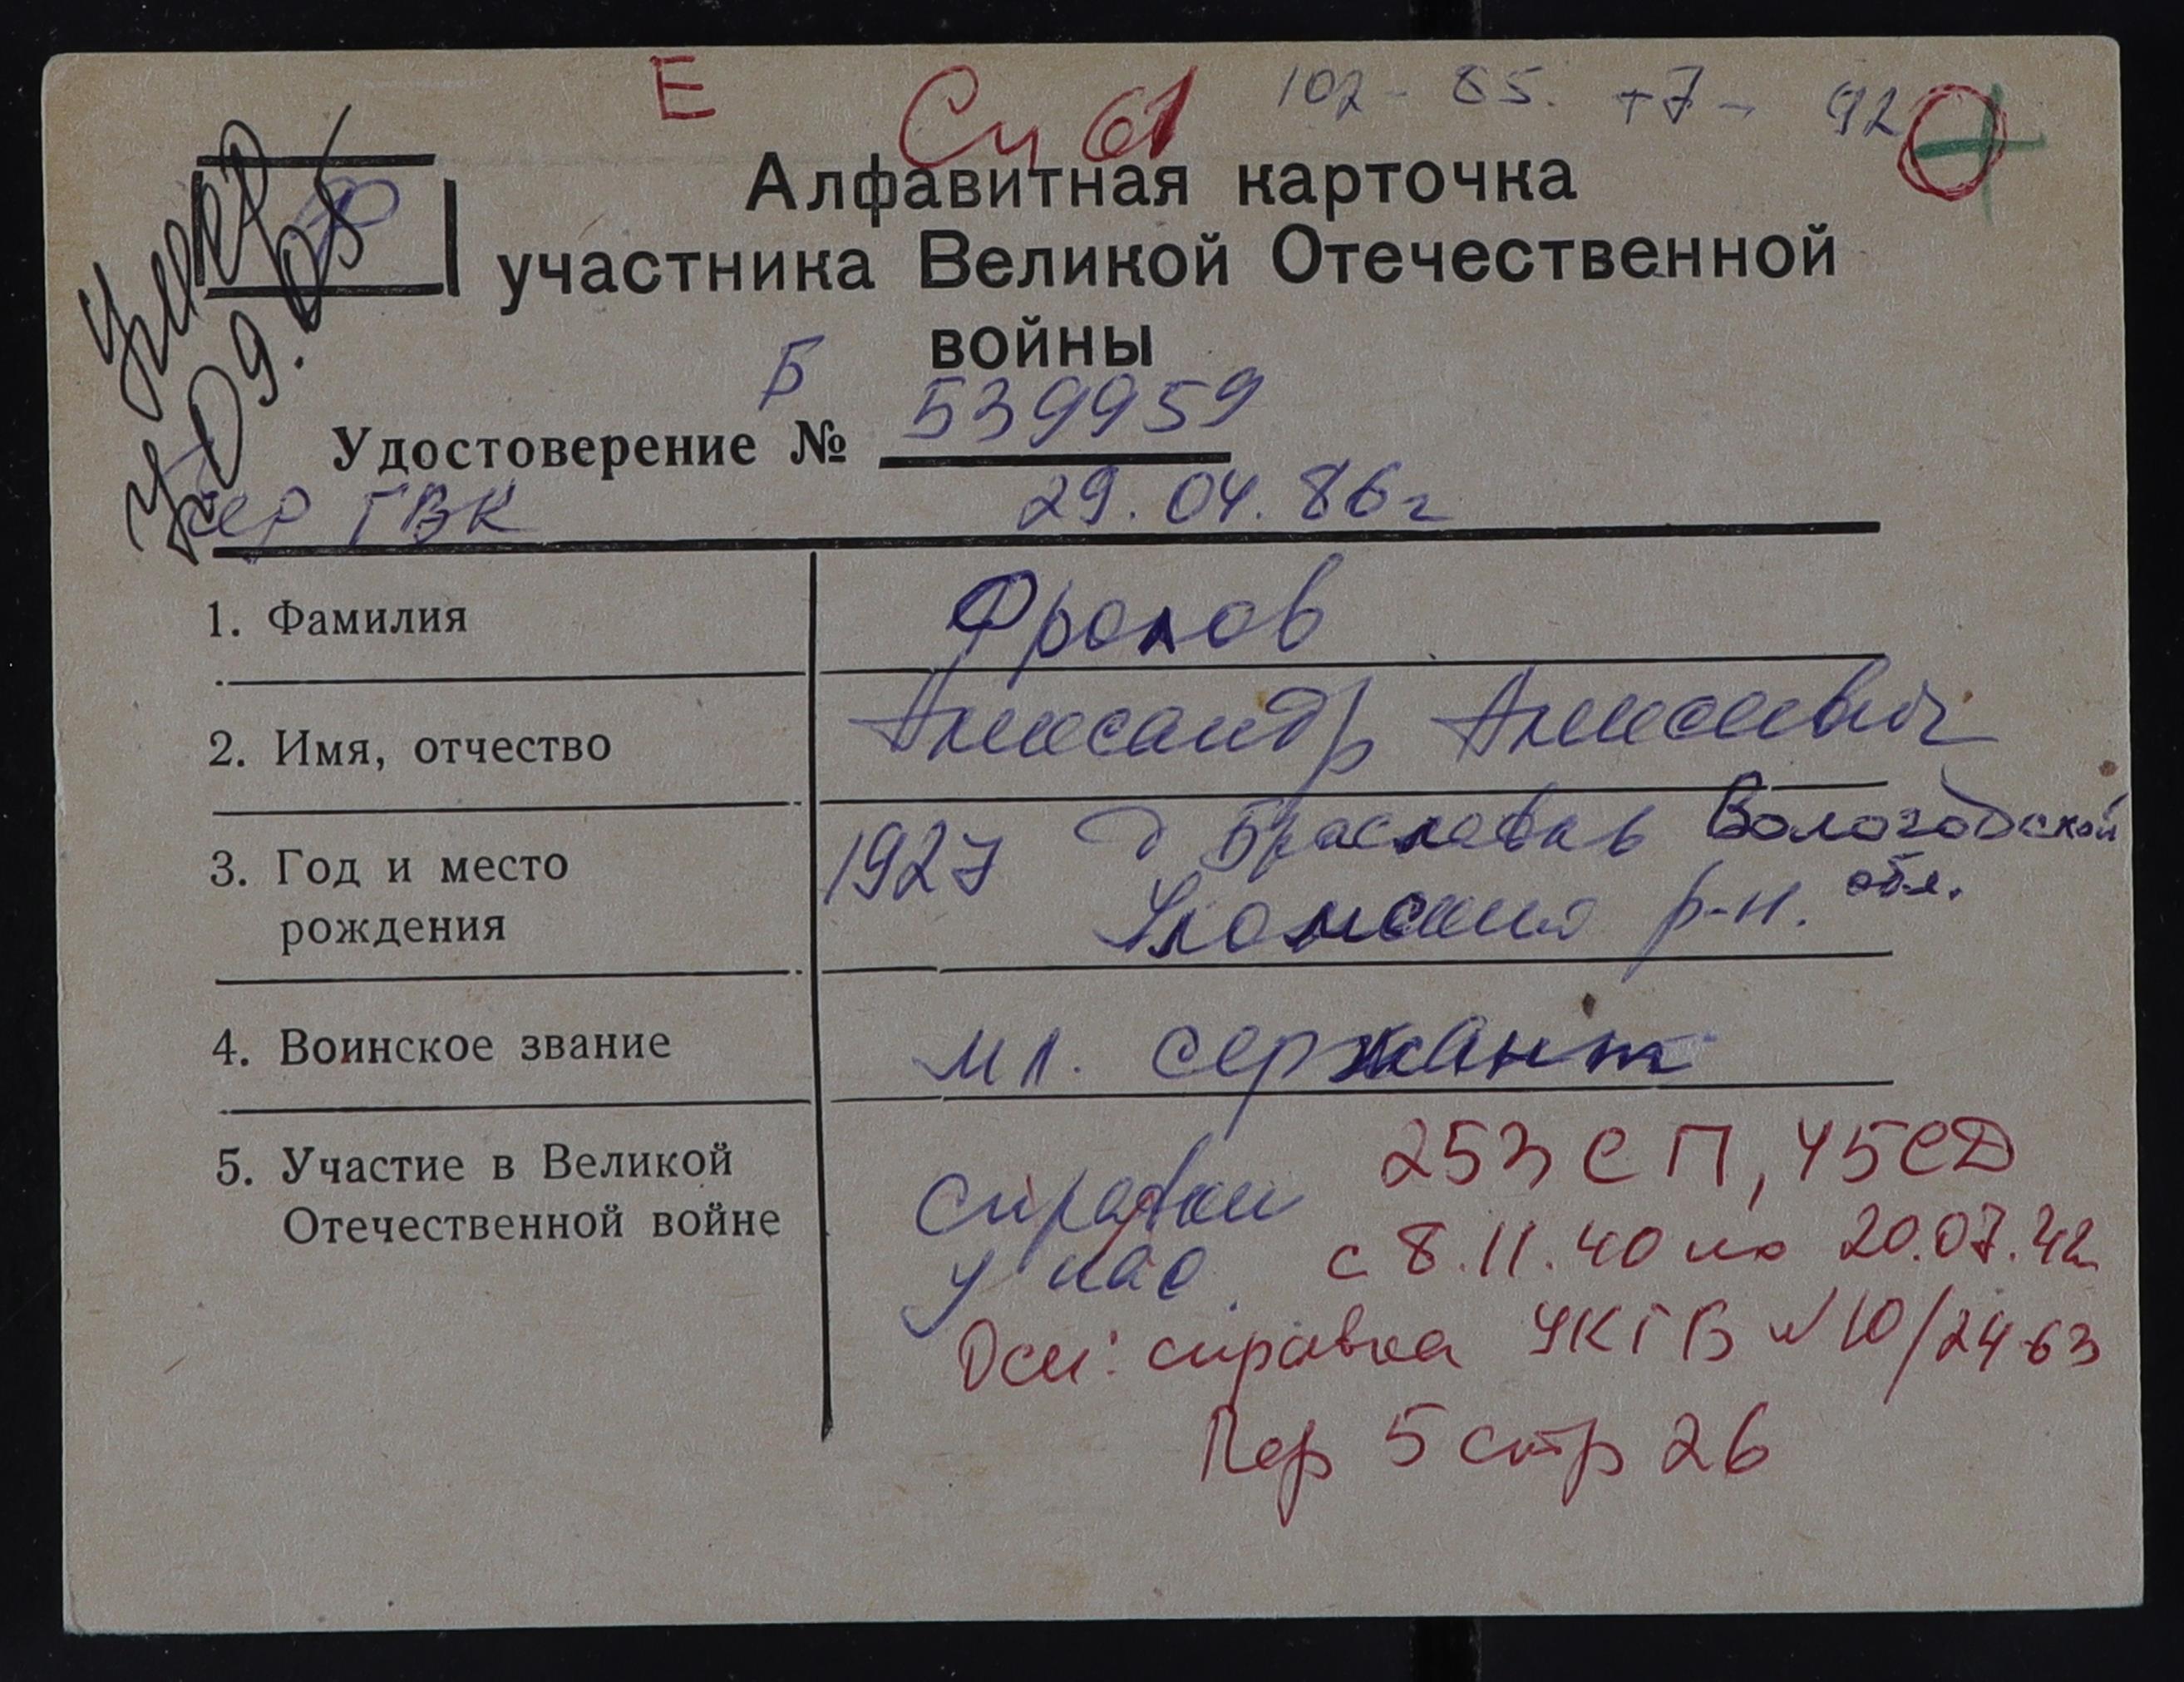 Е Сч 61 102 - 85. +7 - 92
Умер
09.05
Ф
Алфавитная карточка
участника Великой Отечественной
войны
Б
Удостоверение № 539959
чер ГВК 29.04.86г
1. Фамилия Фролов
2. Имя, отчество Александр Алексеевич
3. Год и место рождения 1927 д Вологодской обл.
р-н.
4. Воинское звание мл. сержант
5. Участие в Великой Отечественной войне
253 СП, 45СД
справки
у нас с 8.11.40 по 20.07.42
Осн: справка УКГВ N 10/2463
Пер 5 стр 26